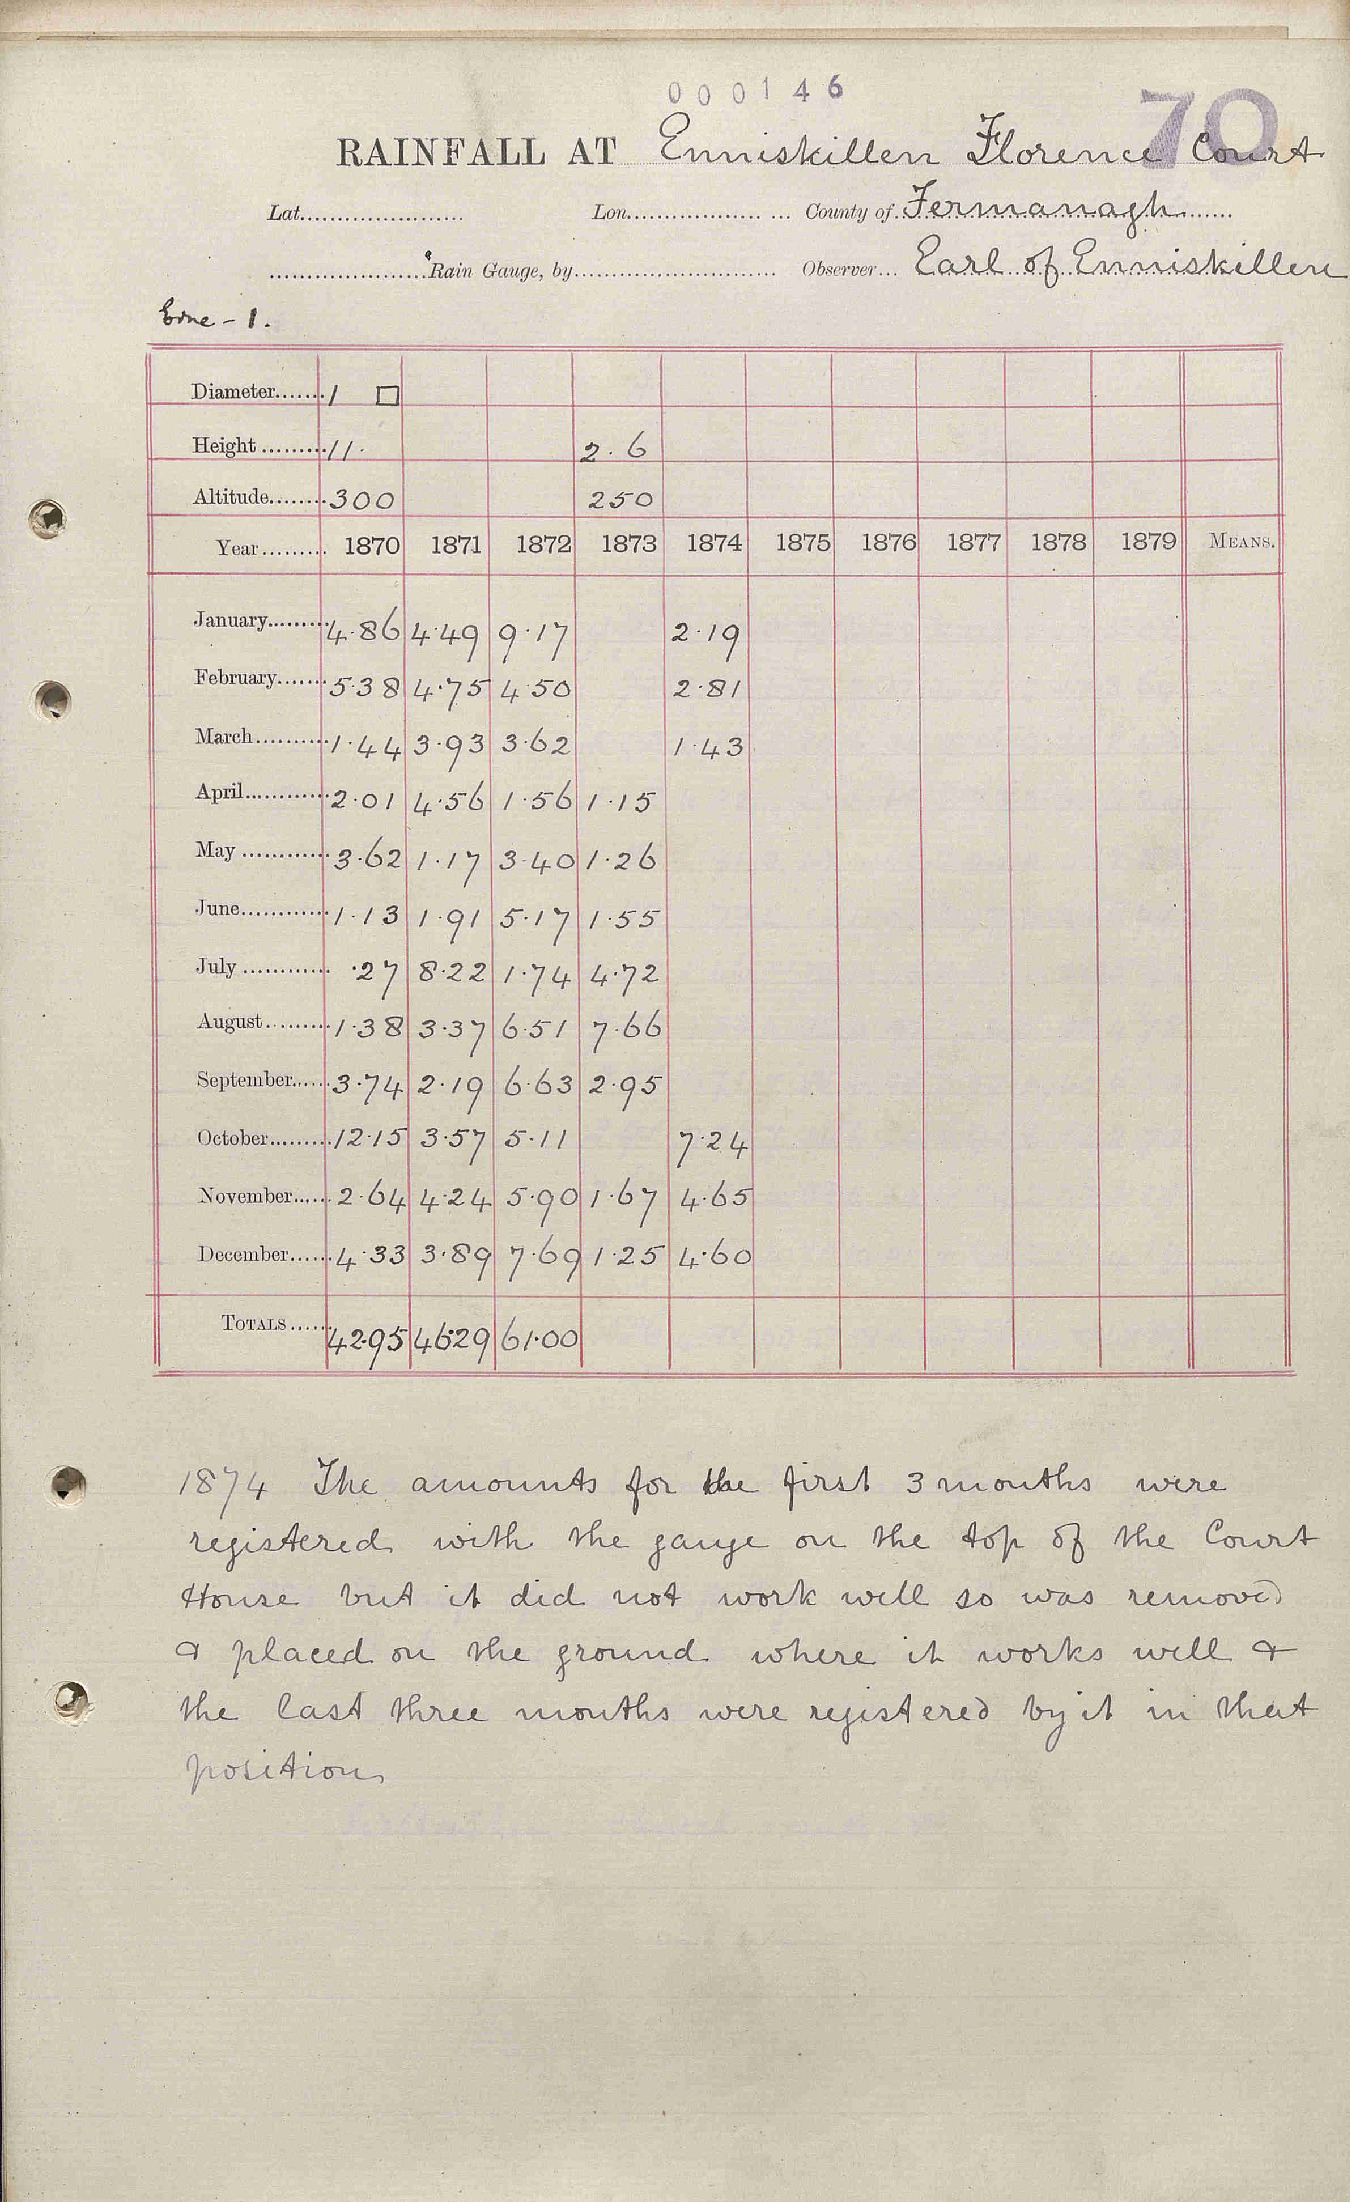 000146
70
RAINFALL AT Enniskillen Florence Court
Lat. Lon. County of Fermanagh
Rain Gauge, by Observer Earl of Enniskillen
Erne - 1.
Diameter 1 □
Height 11. 2.6
Altitude 300 250
Year 1870 1871 1872 1873 1874 1875 1876 1877 1878 1879 MEANS.
January 4.86 4.49 9.17 2.19
February 5.38 4.75 4.50 2.81
March 1.44 3.93 3.62 1.43
April 2.01 4.56 1.56 1.15
May 3.62 1.17 3.40 1.26
June 1.13 1.91 5.17 1.55
July .27 8.22 1.74 4.72
August 1.38 3.37 6.51 7.66
September 3.74 2.19 6.63 2.95
October 12.15 3.57 5.11 7.24
November 2.64 4.24 5.90 1.67 4.65
December 4.33 3.89 7.69 1.25 4.60
TOTALS 42.95 46.29 61.00
1874 The amounts for the first 3 months were
registered with the gauge on the top of the Court
House but it did not work well so was removed
& placed on the ground where it works well &
the last three months were registered by it in that
position